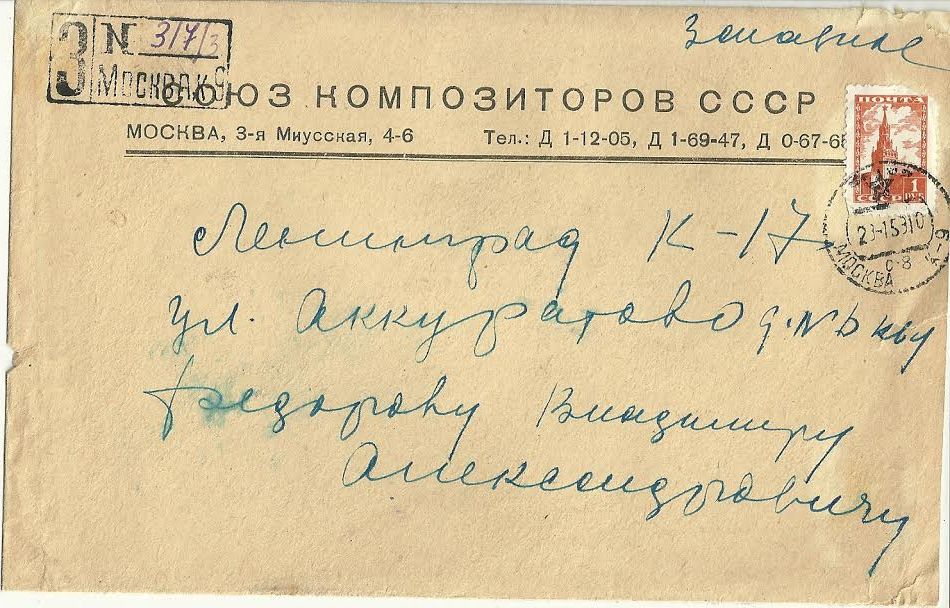 Заказное
З N 317/3
МОСКВА К-9
СОЮЗ КОМПОЗИТОРОВ СССР
МОСКВА, 3-я Миусская, 4-6 Тел.: Д 1-12-05, Д 1-69-47, Д 0-67-65
ПОЧТА
1 РУБ
СССР
МОСКВА
Ленинград К-17
ул. Аккуратово д. № 6 кв 4
Федорову Владимиру
Александровичу